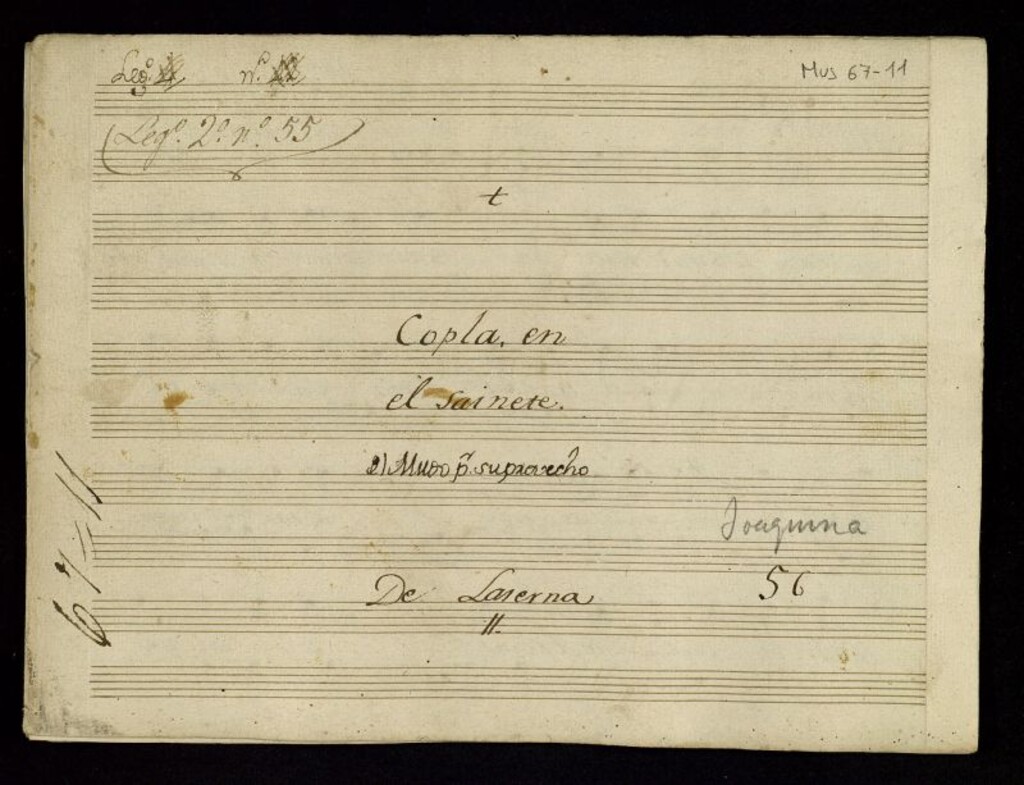 Leg.º nº.
Mus 67-11
Leg.º 2º. nº. 55
Copla, en
el sainete.
el Mudo pr. suprovecho
Joaquina
56
De Laserna
67=11